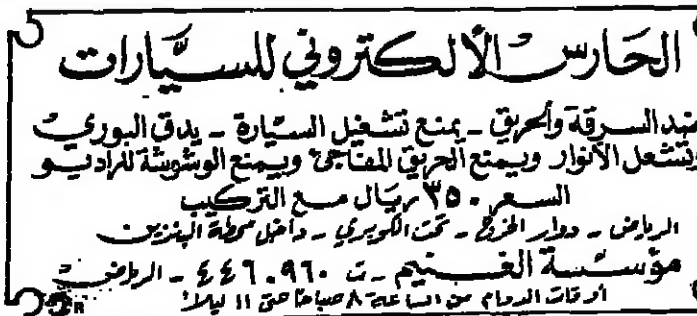 الحارس الألكتروني للسيّارات
ضد السرقة والحريق - يمنع تشغيل السيّارة - يدق البوري
وتشعل الأنوار ويمنع الحريق المفاجئ ويمنع الوشوشة للراديو
السعر ٣٥٠ ريال مع التركيب
الرياض - دوار الخرج - تحت الكوبري - داخل محطة البنزين
مؤسسة الغنيم - ت ٤٤٦٠٩٦٠ - الرياض
أوقات الدوام من الساعة ٨ صباحا حتى ١١ ليلا